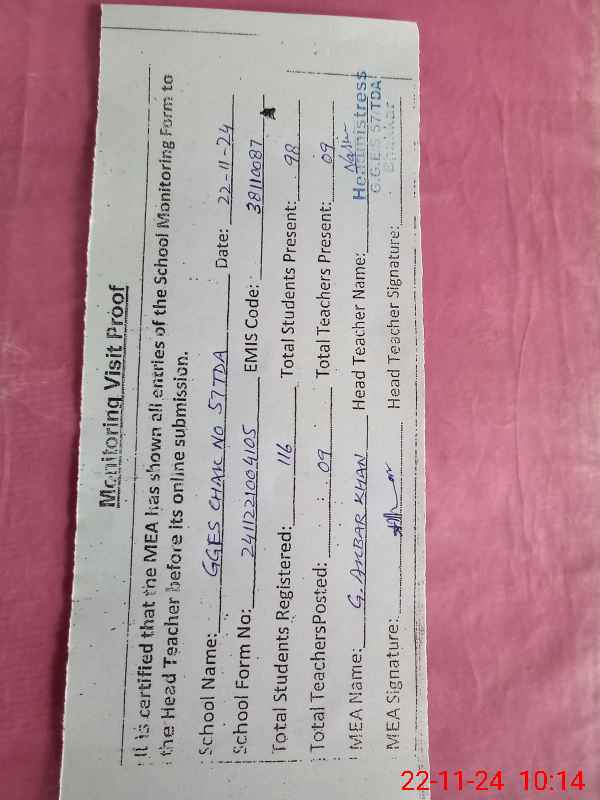 Monitoring Visit Proof
It is certified that the MEA has shown all entries of the School Monitoring Form to
the Head Teacher before its online submission.
School Name: GGES CHAK NO 57TDA Date: 22-11-24
School Form No: 2411221004105 EMIS Code: 38110087
Total Students Registered: 116 Total Students Present: 98
Total TeachersPosted: 09 Total Teachers Present: 09
MEA Name: G. AKBAR KHAN Head Teacher Name:
MEA Signature: Head Teacher Signature:
Headmistress
G.G.E.S 57/TDA
Bhakkar
22-11-24 10:14